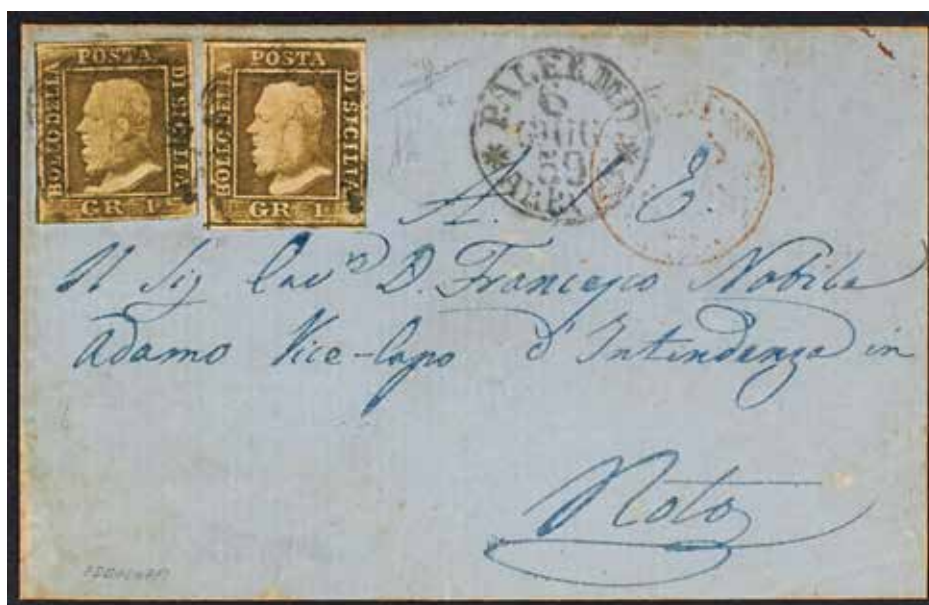 POSTA
BOLLO DELLA
DI SICILIA
GR. 1
POSTA
BOLLO DELLA
DI SICILIA
GR. 1
PALERMO
6
GIUG
59
A. S. E.
Il Sig Cav.re D. Francesco Nobile
Adamo Vice-Capo d'Intendenza in
Noto